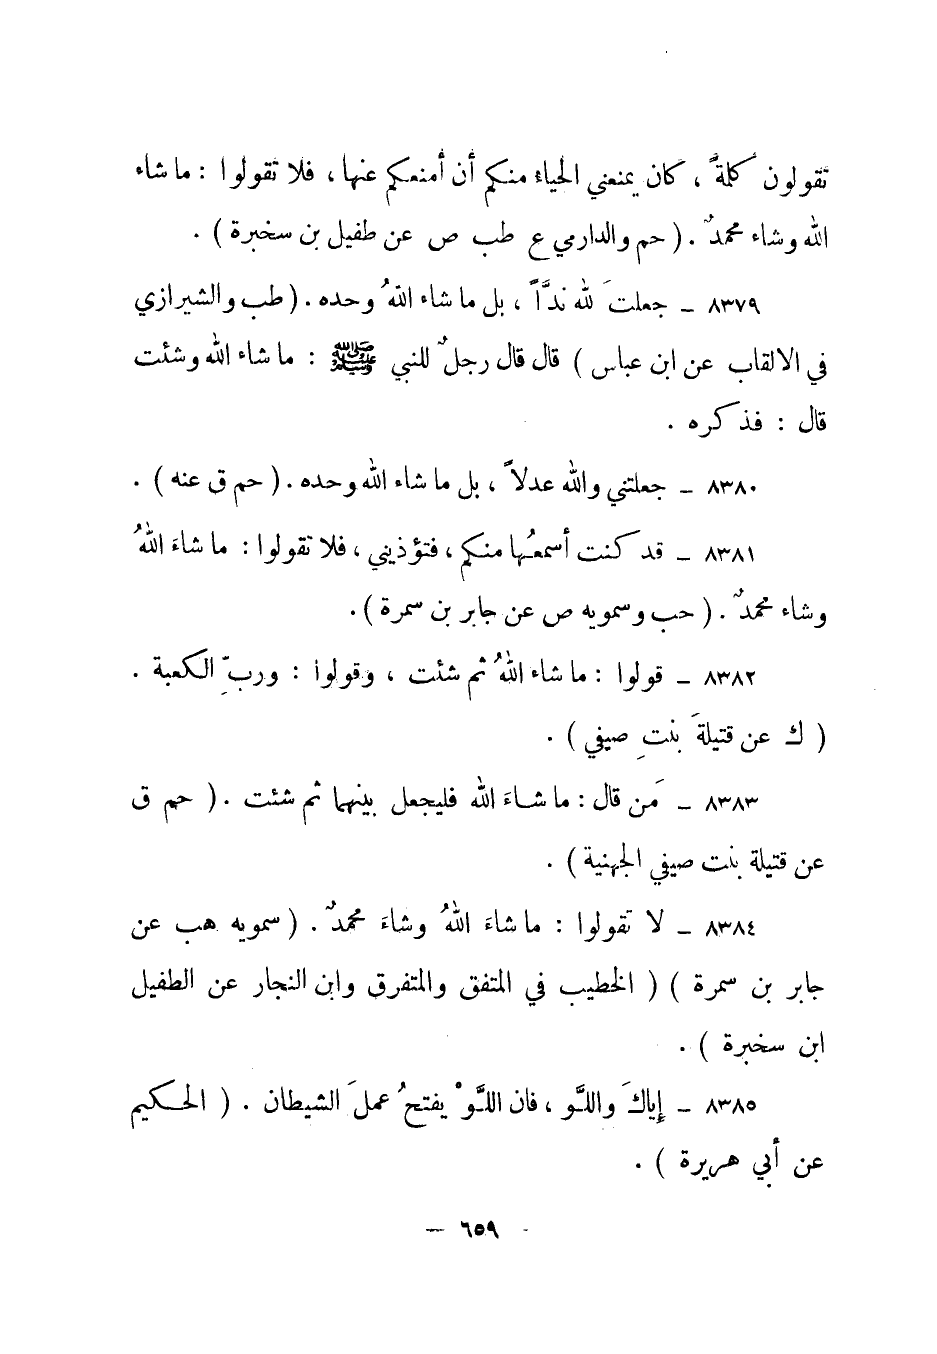 تقولون كلمةً ، كان يمنعني الحياء منكم أن أمنعكم عنها ، فلا تقولوا : ما شاء
الله وشاء محمدٌ . ( حم والدارمي ع طب ص عن طفيل بن سخبرة ) .
٨٣٧٩ – جعلتَ لله ندَّاً ، بل ما شاء اللهُ وحده . ( طب والشيرازي
في الالقاب عن ابن عباس ) قال قال رجلٌ للنبي ﷺ : ما شاء الله وشئت
قال : فذكره .
٨٣٨٠ – جعلتني والله عدلاً ، بل ما شاء الله وحده . ( حم ق عنه ) .
٨٣٨١ – قد كنت أسمعُها منكم ، فتؤذيني ، فلا تقولوا : ما شاءَ اللهُ
وشاء محمدٌ . ( حب وسمويه ص عن جابر بن سمرة ) .
٨٣٨٢ – قولوا : ما شاء اللهُ ثم شئت ، وقولوا : وربِّ الكعبة .
( ك عن قتيلةَ بنتِ صيفي ) .
٨٣٨٣ – مَن قال : ما شاءَ الله فليجعل بينهما ثم شئت . ( حم ق
عن قتيلة بنت صيفي الجهنية ) .
٨٣٨٤ – لا تقولوا : ما شاءَ اللهُ وشاءَ محمدٌ . ( سمويه هب عن
جابر بن سمرة ) ( الخطيب في المتفق والمتفرق وابن النجار عن الطفيل
ابن سخبرة ) .
٨٣٨٥ – إياكَ واللَّو ، فان اللَّوْ يفتحُ عملَ الشيطان . ( الحكيم
عن أبي هريرة ) .
- ٦٥٩ –